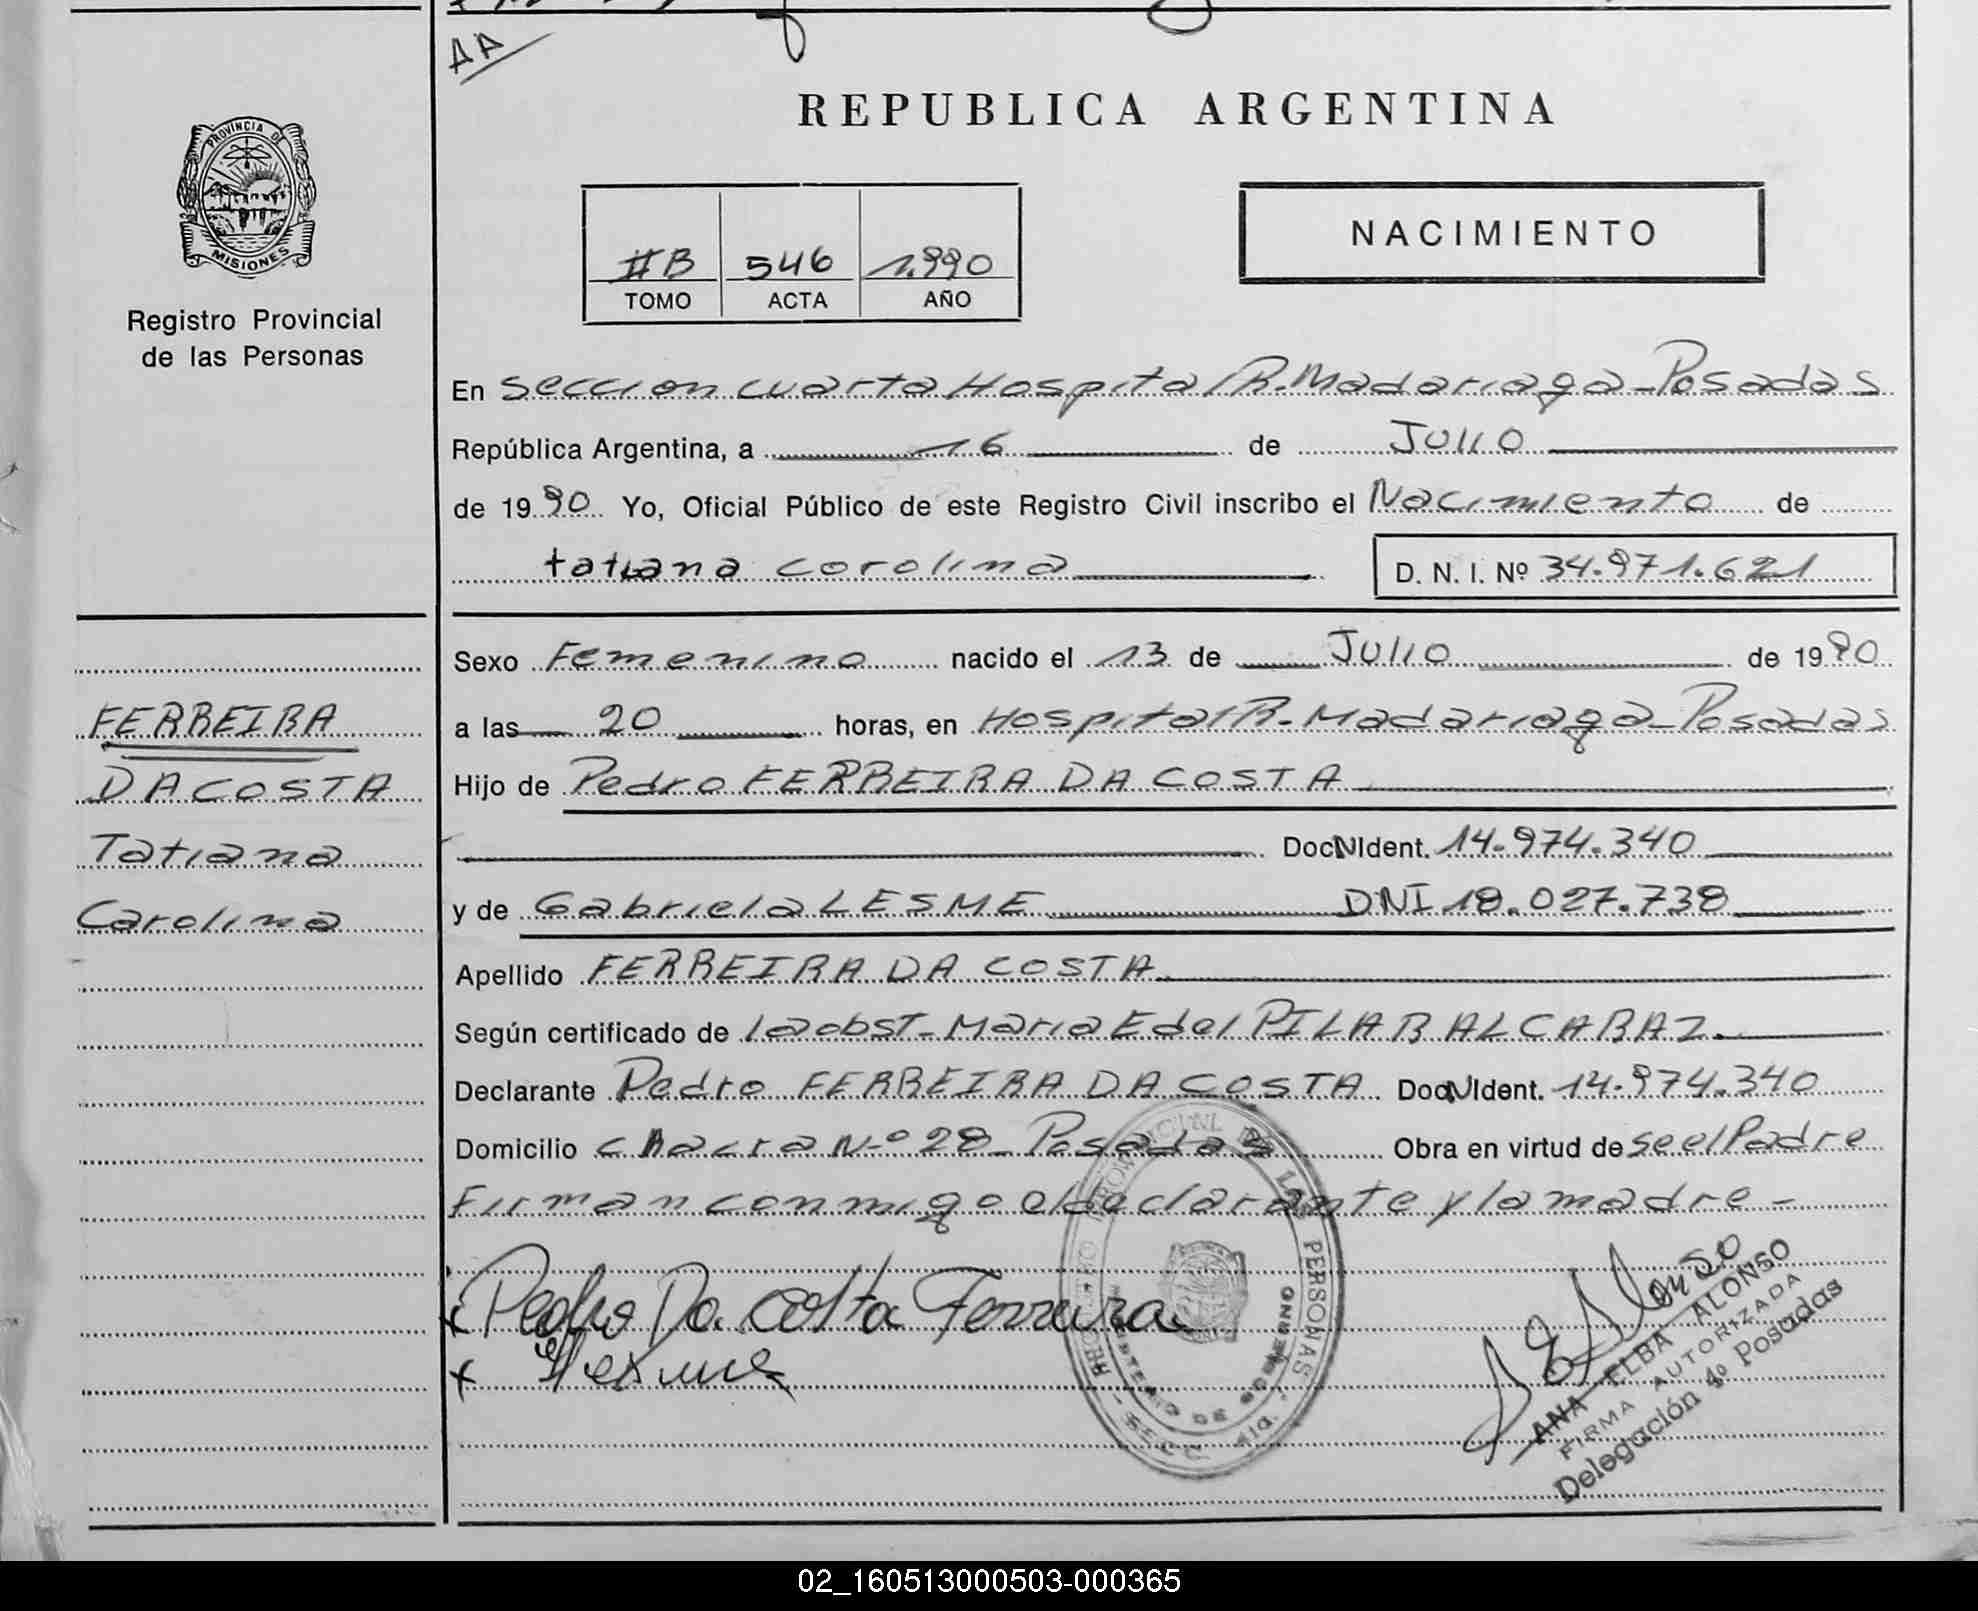 AA
REPUBLICA ARGENTINA
PROVINCIA DE
MISIONES
Registro Provincial
de las Personas
IIB 546 1.990
TOMO ACTA AÑO
NACIMIENTO
En Seccion cuarta Hospital R. Madariaga - Posadas
República Argentina, a 16 de Julio
de 1990 Yo, Oficial Público de este Registro Civil inscribo el Nacimiento de
tatiana carolina D. N. I. Nº 34.971.621
Sexo Femenino nacido el 13 de Julio de 1990
a las 20 horas, en Hospital R. Madariaga - Posadas
Hijo de Pedro FERREIRA DA COSTA
Doc N Ident. 14.974.340
y de Gabriela LESME DNI 18.027.738
Apellido FERREIRA DA COSTA
Según certificado de la obst - Maria E del PILAR ALCARAZ
Declarante Pedro FERREIRA DA COSTA Doc N Ident. 14.974.340
Domicilio chacra Nº 28 - Posadas Obra en virtud de se el Padre
Firman conmigo el declarante y la madre -
FERREIRA
DA COSTA
Tatiana
Carolina
x Pedro Da costa Ferreira
x
REGISTRO PROVINCIAL DE LAS PERSONAS
MINISTERIO DE GOBIERNO
SECC. 4ta.
AEAlonso
ANA ELBA ALONSO
FIRMA AUTORIZADA
Delegación 4º Posadas
02_160513000503-000365